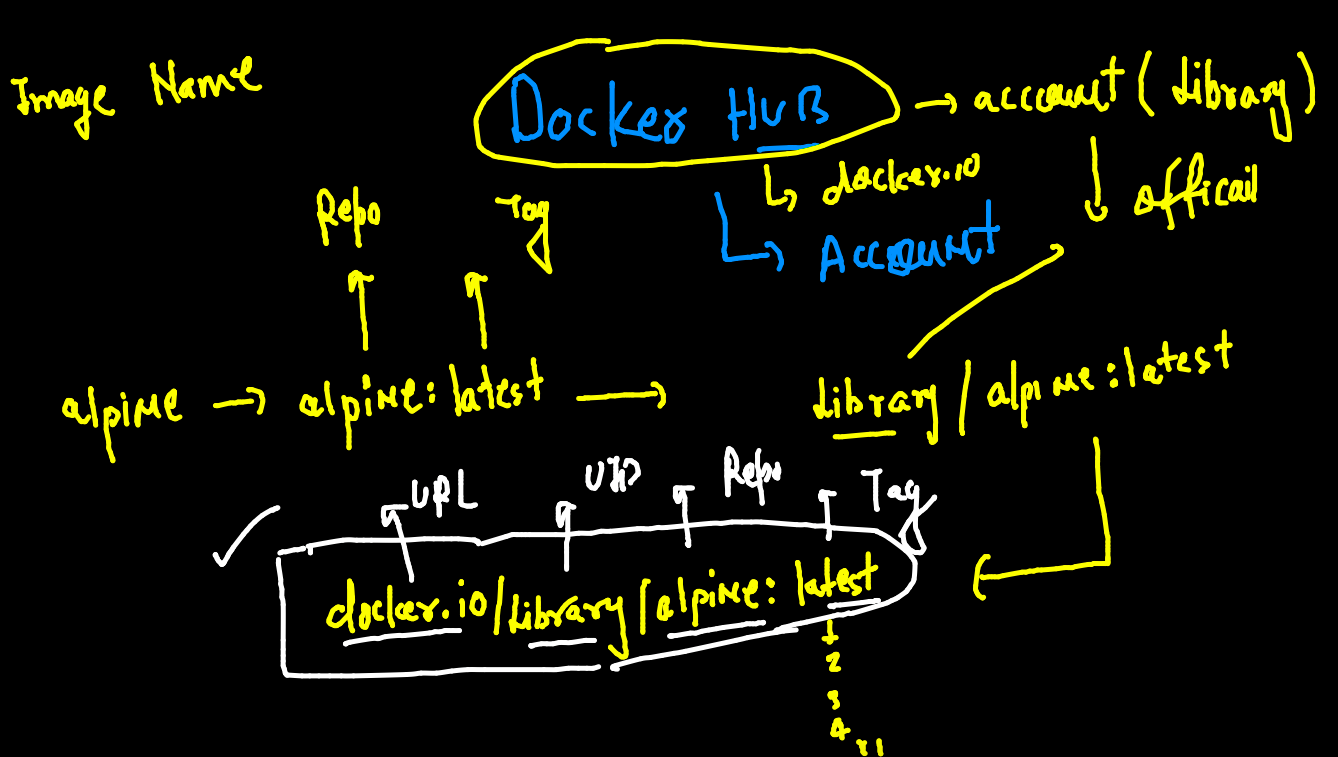 Image Name
Docker HUB → account (Library)
↳ docker.io
officail
Repo
Tag
↳ Account
alpine → alpine:latest → Library/alpine:latest
URL
Repo
Tag
docker.io/Library/alpine:latest
1
2
3
4